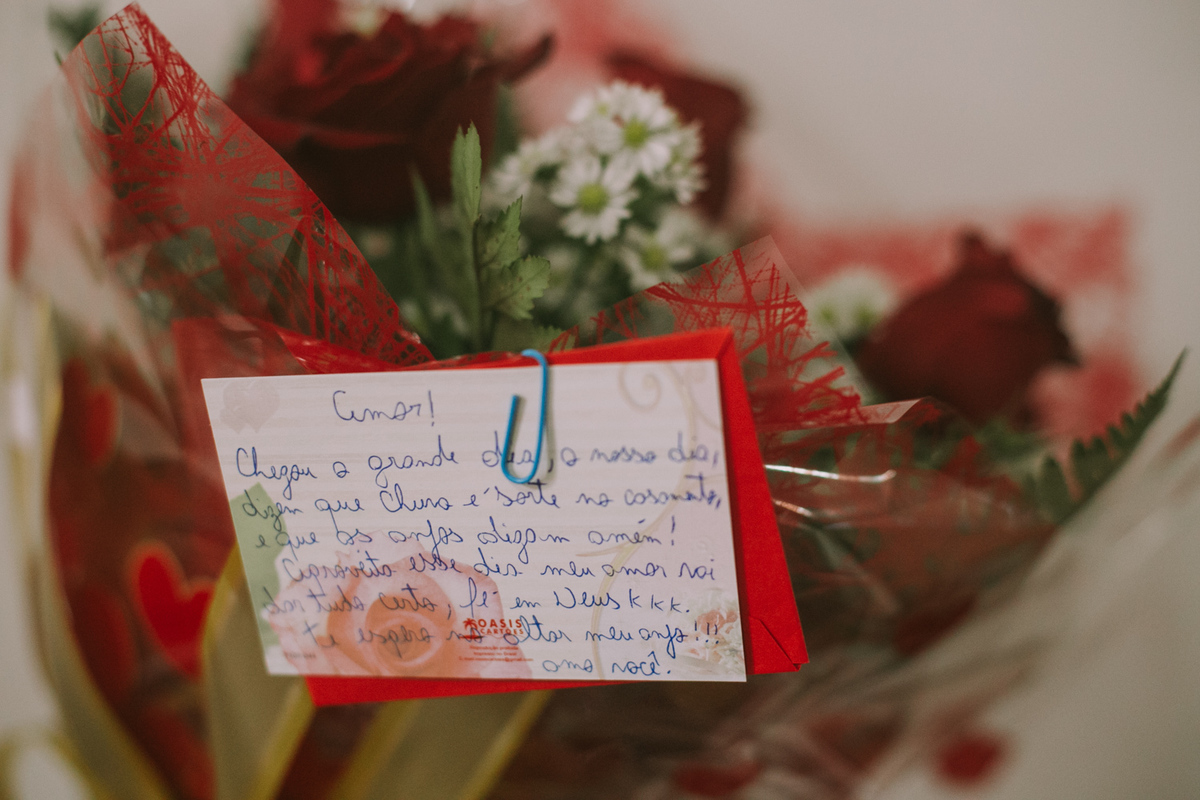 Amor!
Chegou o grande dia, o nosso dia,
dizem que Chuva é sorte no casamento,
e que os anjos digam amém!
Aproveita esse dia meu amor vai
dar tudo certo, fé em Deus kkk.
te espero no altar meu anjo!!!
amo você.
OASIS
CARTÕES